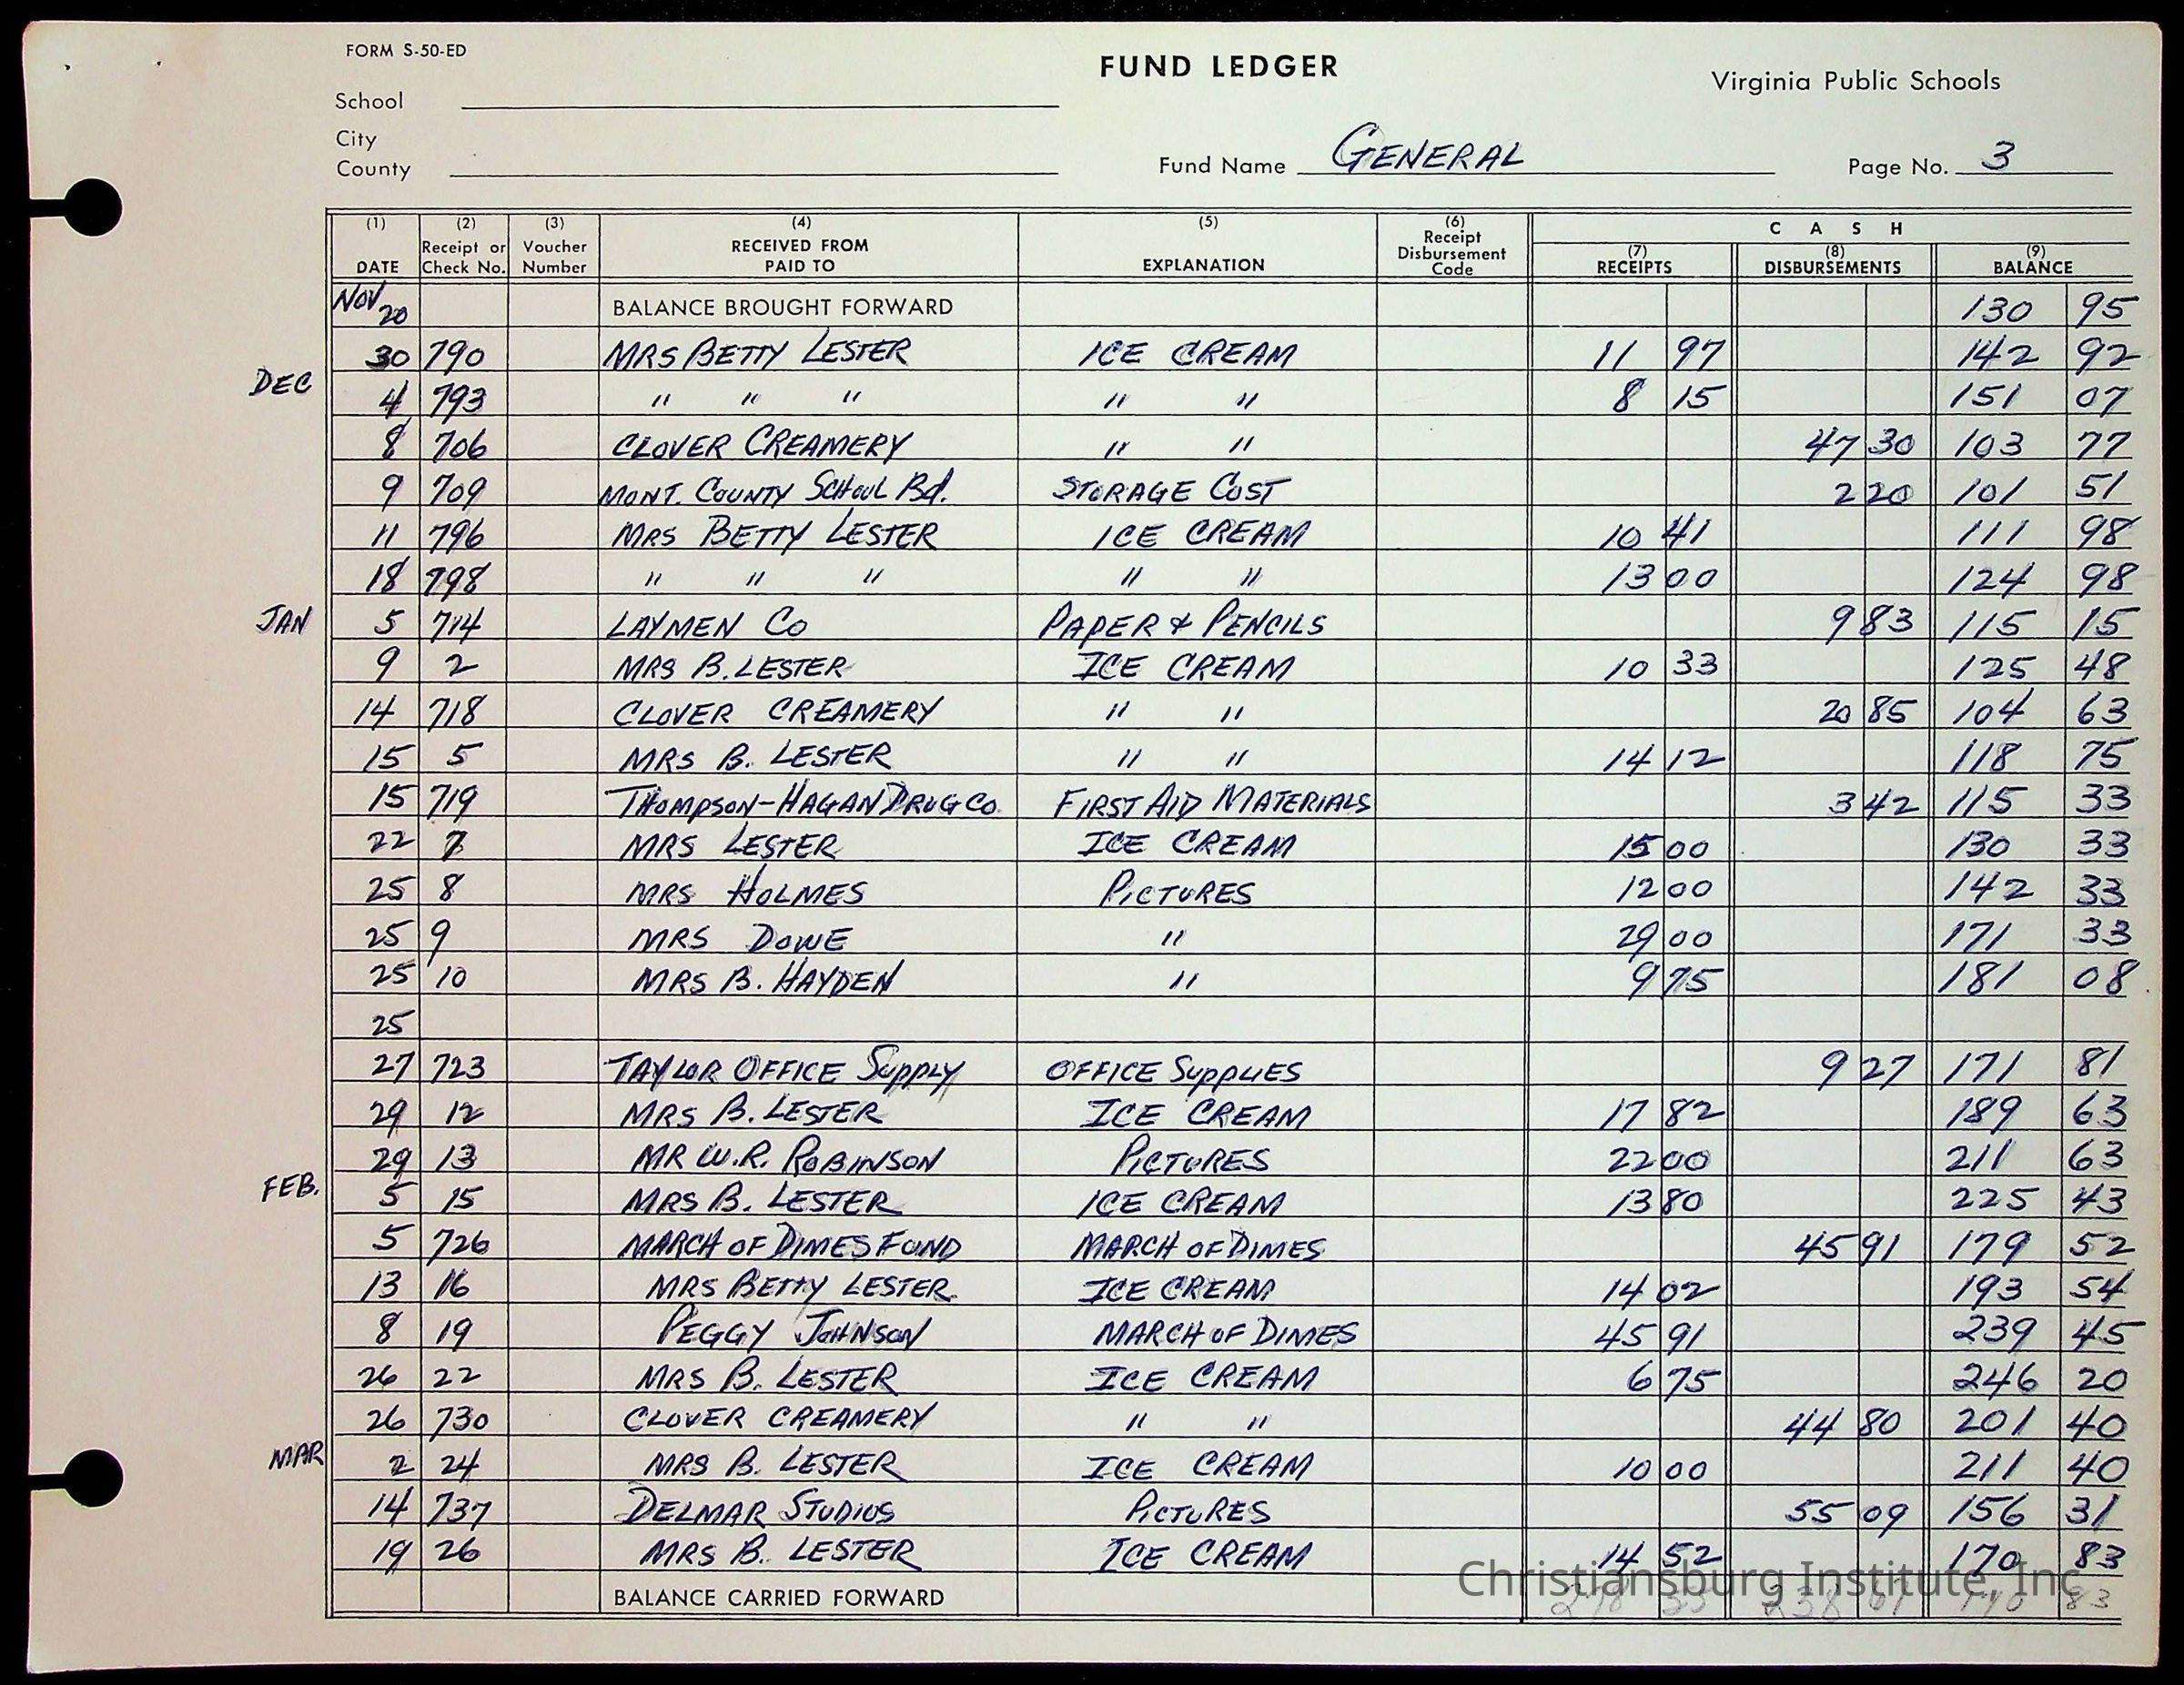 FORM S-50-ED
FUND LEDGER
Virginia Public Schools
School
City
County
Fund Name GENERAL
Page No. 3
(1) (2) (3) (4) (5) (6) C A S H
DATE Receipt or Check No. Voucher Number RECEIVED FROM PAID TO EXPLANATION Receipt Disbursement Code (7) RECEIPTS (8) DISBURSEMENTS (9) BALANCE
NOV 20 BALANCE BROUGHT FORWARD 130 95
30 790 MRS BETTY LESTER ICE CREAM 11 97 142 92
DEC 4 793 " " " " " 8 15 151 07
8 706 CLOVER CREAMERY " " 47 30 103 77
9 709 MONT. COUNTY SCHOOL Bd. STORAGE COST 2 20 101 51
11 796 MRS BETTY LESTER ICE CREAM 10 41 111 98
18 798 " " " " " 13 00 124 98
JAN 5 714 LAYMEN CO PAPER & PENCILS 9 83 115 15
9 2 MRS B. LESTER ICE CREAM 10 33 125 48
14 718 CLOVER CREAMERY " " 20 85 104 63
15 5 MRS B. LESTER " " 14 12 118 75
15 719 THOMPSON-HAGAN DRUG CO. FIRST AID MATERIALS 3 42 115 33
22 7 MRS LESTER ICE CREAM 15 00 130 33
25 8 MRS HOLMES PICTURES 12 00 142 33
25 9 MRS DOWE " 29 00 171 33
25 10 MRS B. HAYDEN " 9 75 181 08
25
27 723 TAYLOR OFFICE SUPPLY OFFICE SUPPLIES 9 27 171 81
29 12 MRS B. LESTER ICE CREAM 17 82 189 63
29 13 MR W.R. ROBINSON PICTURES 22 00 211 63
FEB. 5 15 MRS B. LESTER ICE CREAM 13 80 225 43
5 726 MARCH OF DIMES FUND MARCH OF DIMES 45 91 179 52
13 16 MRS BETTY LESTER ICE CREAM 14 02 193 54
8 19 PEGGY JOHNSON MARCH OF DIMES 45 91 239 45
26 22 MRS B. LESTER ICE CREAM 6 75 246 20
26 730 CLOVER CREAMERY " " 44 80 201 40
MAR 2 24 MRS B. LESTER ICE CREAM 10 00 211 40
14 737 DELMAR STUDIOS PICTURES 55 09 156 31
19 26 MRS B. LESTER ICE CREAM 14 52 170 83
BALANCE CARRIED FORWARD 83
Christiansburg Institute, Inc